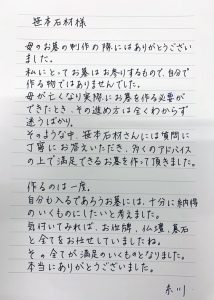 笹本石材様
母のお墓の制作の際にはありがとうござい
ました。
私にとってお墓はお参りするもので、自分で
作る物ではありませんでした。
母が亡くなり実際にお墓を作る必要が
できたとき、その進め方は全くわからず
迷うばかり。
そのような中、笹本石材さんには質問に
丁寧にお答えいただき、多くのアドバイス
の上で満足できるお墓を作って頂きました。
作るのは一度。
自分も入るであろうお墓には、十分に納得
のいくものにしたいと考えました。
気付いてみれば、お位牌、仏壇、墓石
と全てをお任せしていましたね。
その全てが満足のいくものとなりました。
本当にありがとうございました。